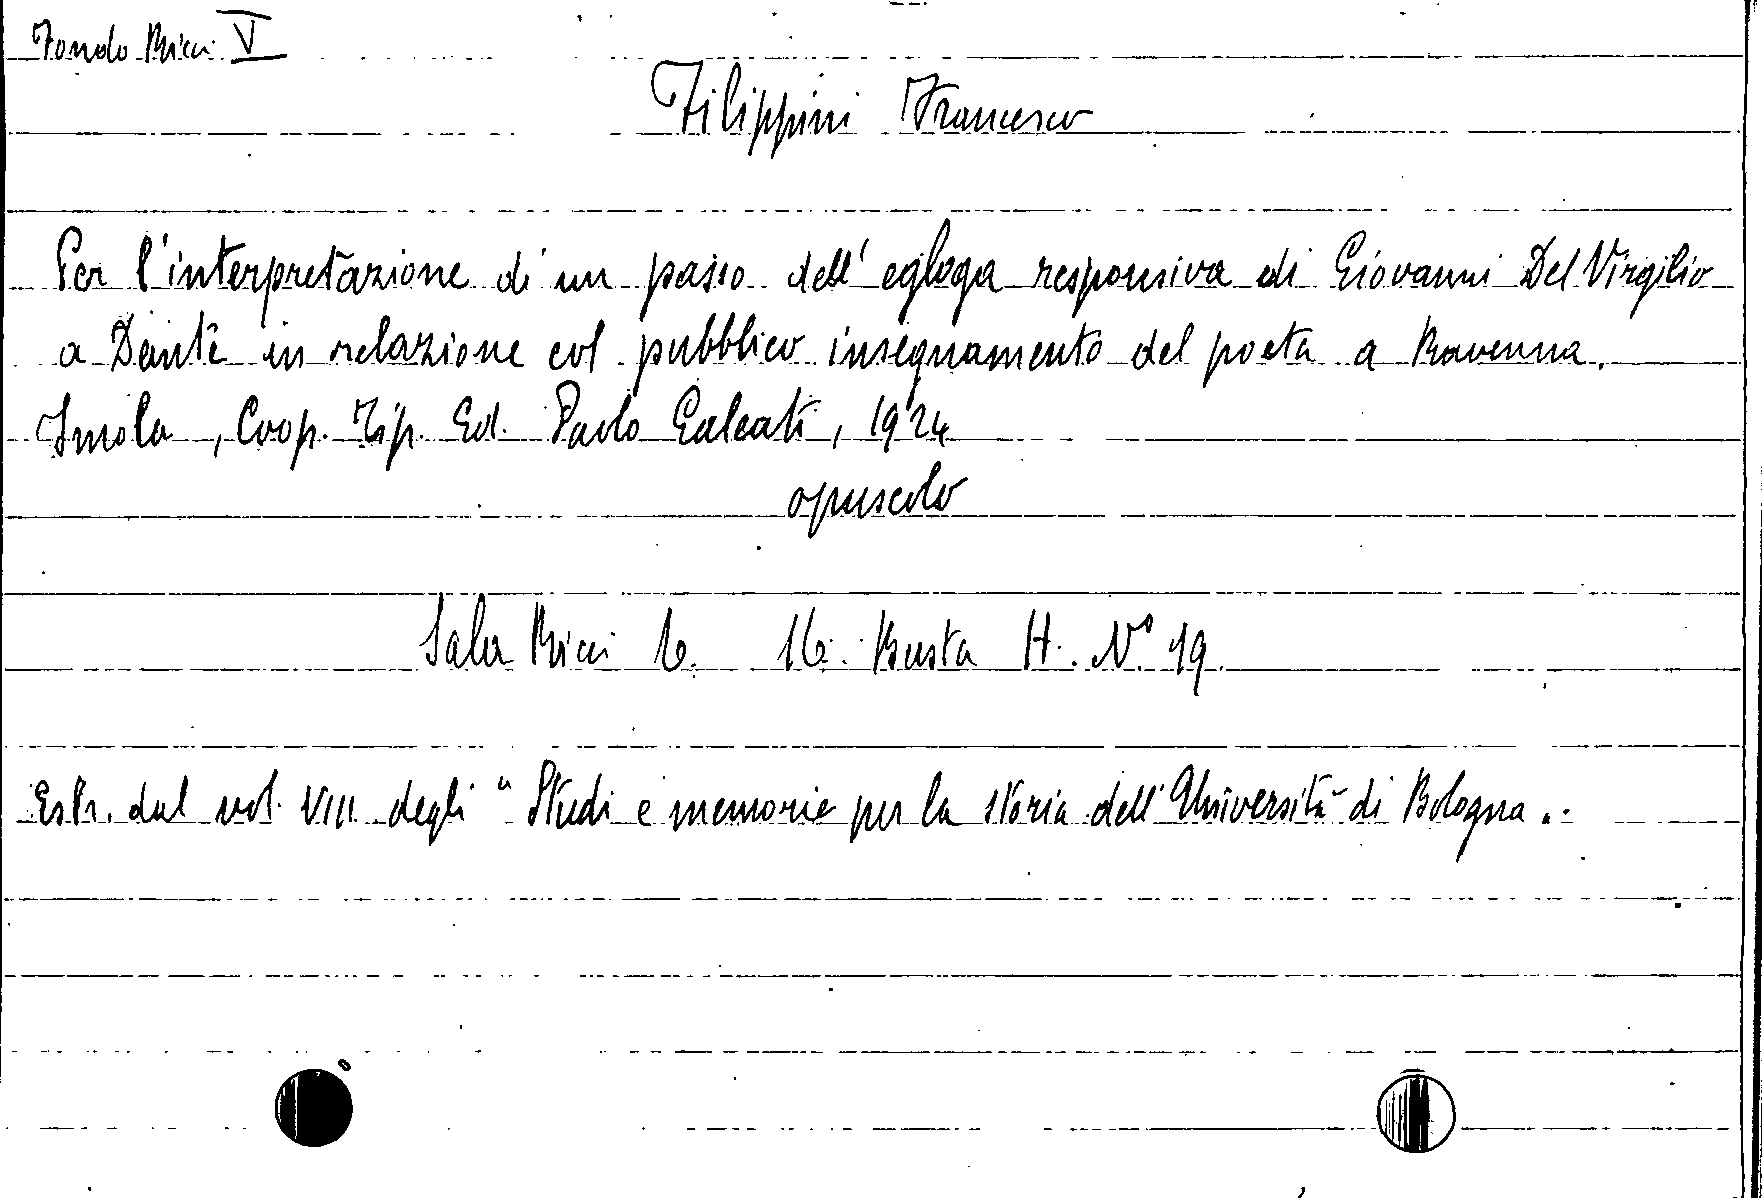 Fondo Ricci V
Filippini Francesco
Per l'interpretazione di un passo dell'egloga responsiva di Giovanni Del Virgilio
a Dante in relazione col pubblico insegnamento del poeta a Ravenna.
Imola, Coop. Tip. Ed. Paolo Galeati, 1924
opuscolo
Sala Ricci 16. Busta H. N° 19.
Estr. dal vol. VIII degli "Studi e memorie per la storia dell'Università di Bologna".